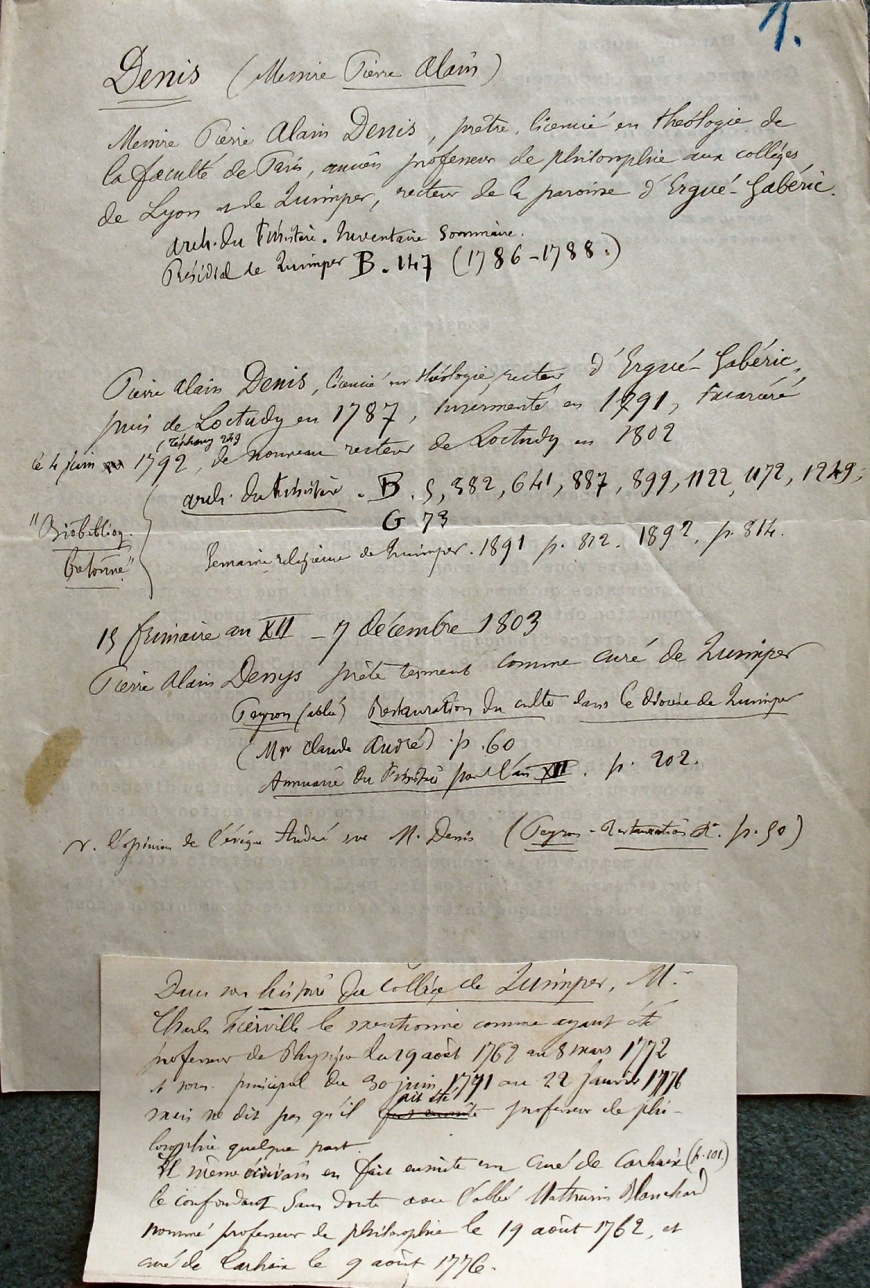 1.
Denis (Messire Pierre Alain)
Messire Pierre Alain Denis, prêtre, licencié en théologie de
la faculté de Paris, ancien professeur de philosophie aux collèges
de Lyon et de Quimper, recteur de la paroisse d'Ergué-Gabéric.
arch. du Finistère. Inventaire Sommaire.
Présidial de Quimper B. 147 (1786-1788.)
Pierre Alain Denis, licencié en théologie, recteur d'Ergué-Gabéric,
puis de Loctudy en 1787, insermenté en 1791, incarcéré
(Téphany 249
le 4 juin 1792, de nouveau recteur de Loctudy en 1802
arch. du Finistère. B. 5, 382, 641, 887, 899, 1122, 1172, 1249,
G 73
"Biobibliog. bretonne"
Semaine religieuse de Quimper. 1891 p. 812. 1892, p. 814.
15 frimaire an XII - 7 décembre 1803
Pierre Alain Denys prête serment comme curé de Quimper
Peyron (abbé) Restauration du culte dans le diocèse de Quimper
(Mgr Claude André) p. 60
Annuaire du Finistère pour l'an XII. p. 202.
v. l'opinion de l'évêque André sur M. Denis (Peyron - Restauration &a. p. 50)
Dans son histoire du Collège de Quimper, M.
Charles Fierville le mentionne comme ayant été
professeur de Physique du 19 août 1762 au 8 mars 1772
et sous principal du 30 juin 1771 au 22 janvier 1776
mais ne dit pas qu'il ait été professeur de phi-
losophie quelque part.
Le même écrivain en fait ensuite un curé de Carhaix (p. 101.)
le confondant sans doute avec l'abbé Mathurin Blanchard
nommé professeur de philosophie le 19 août 1762, et
curé de Carhaix le 9 août 1776.